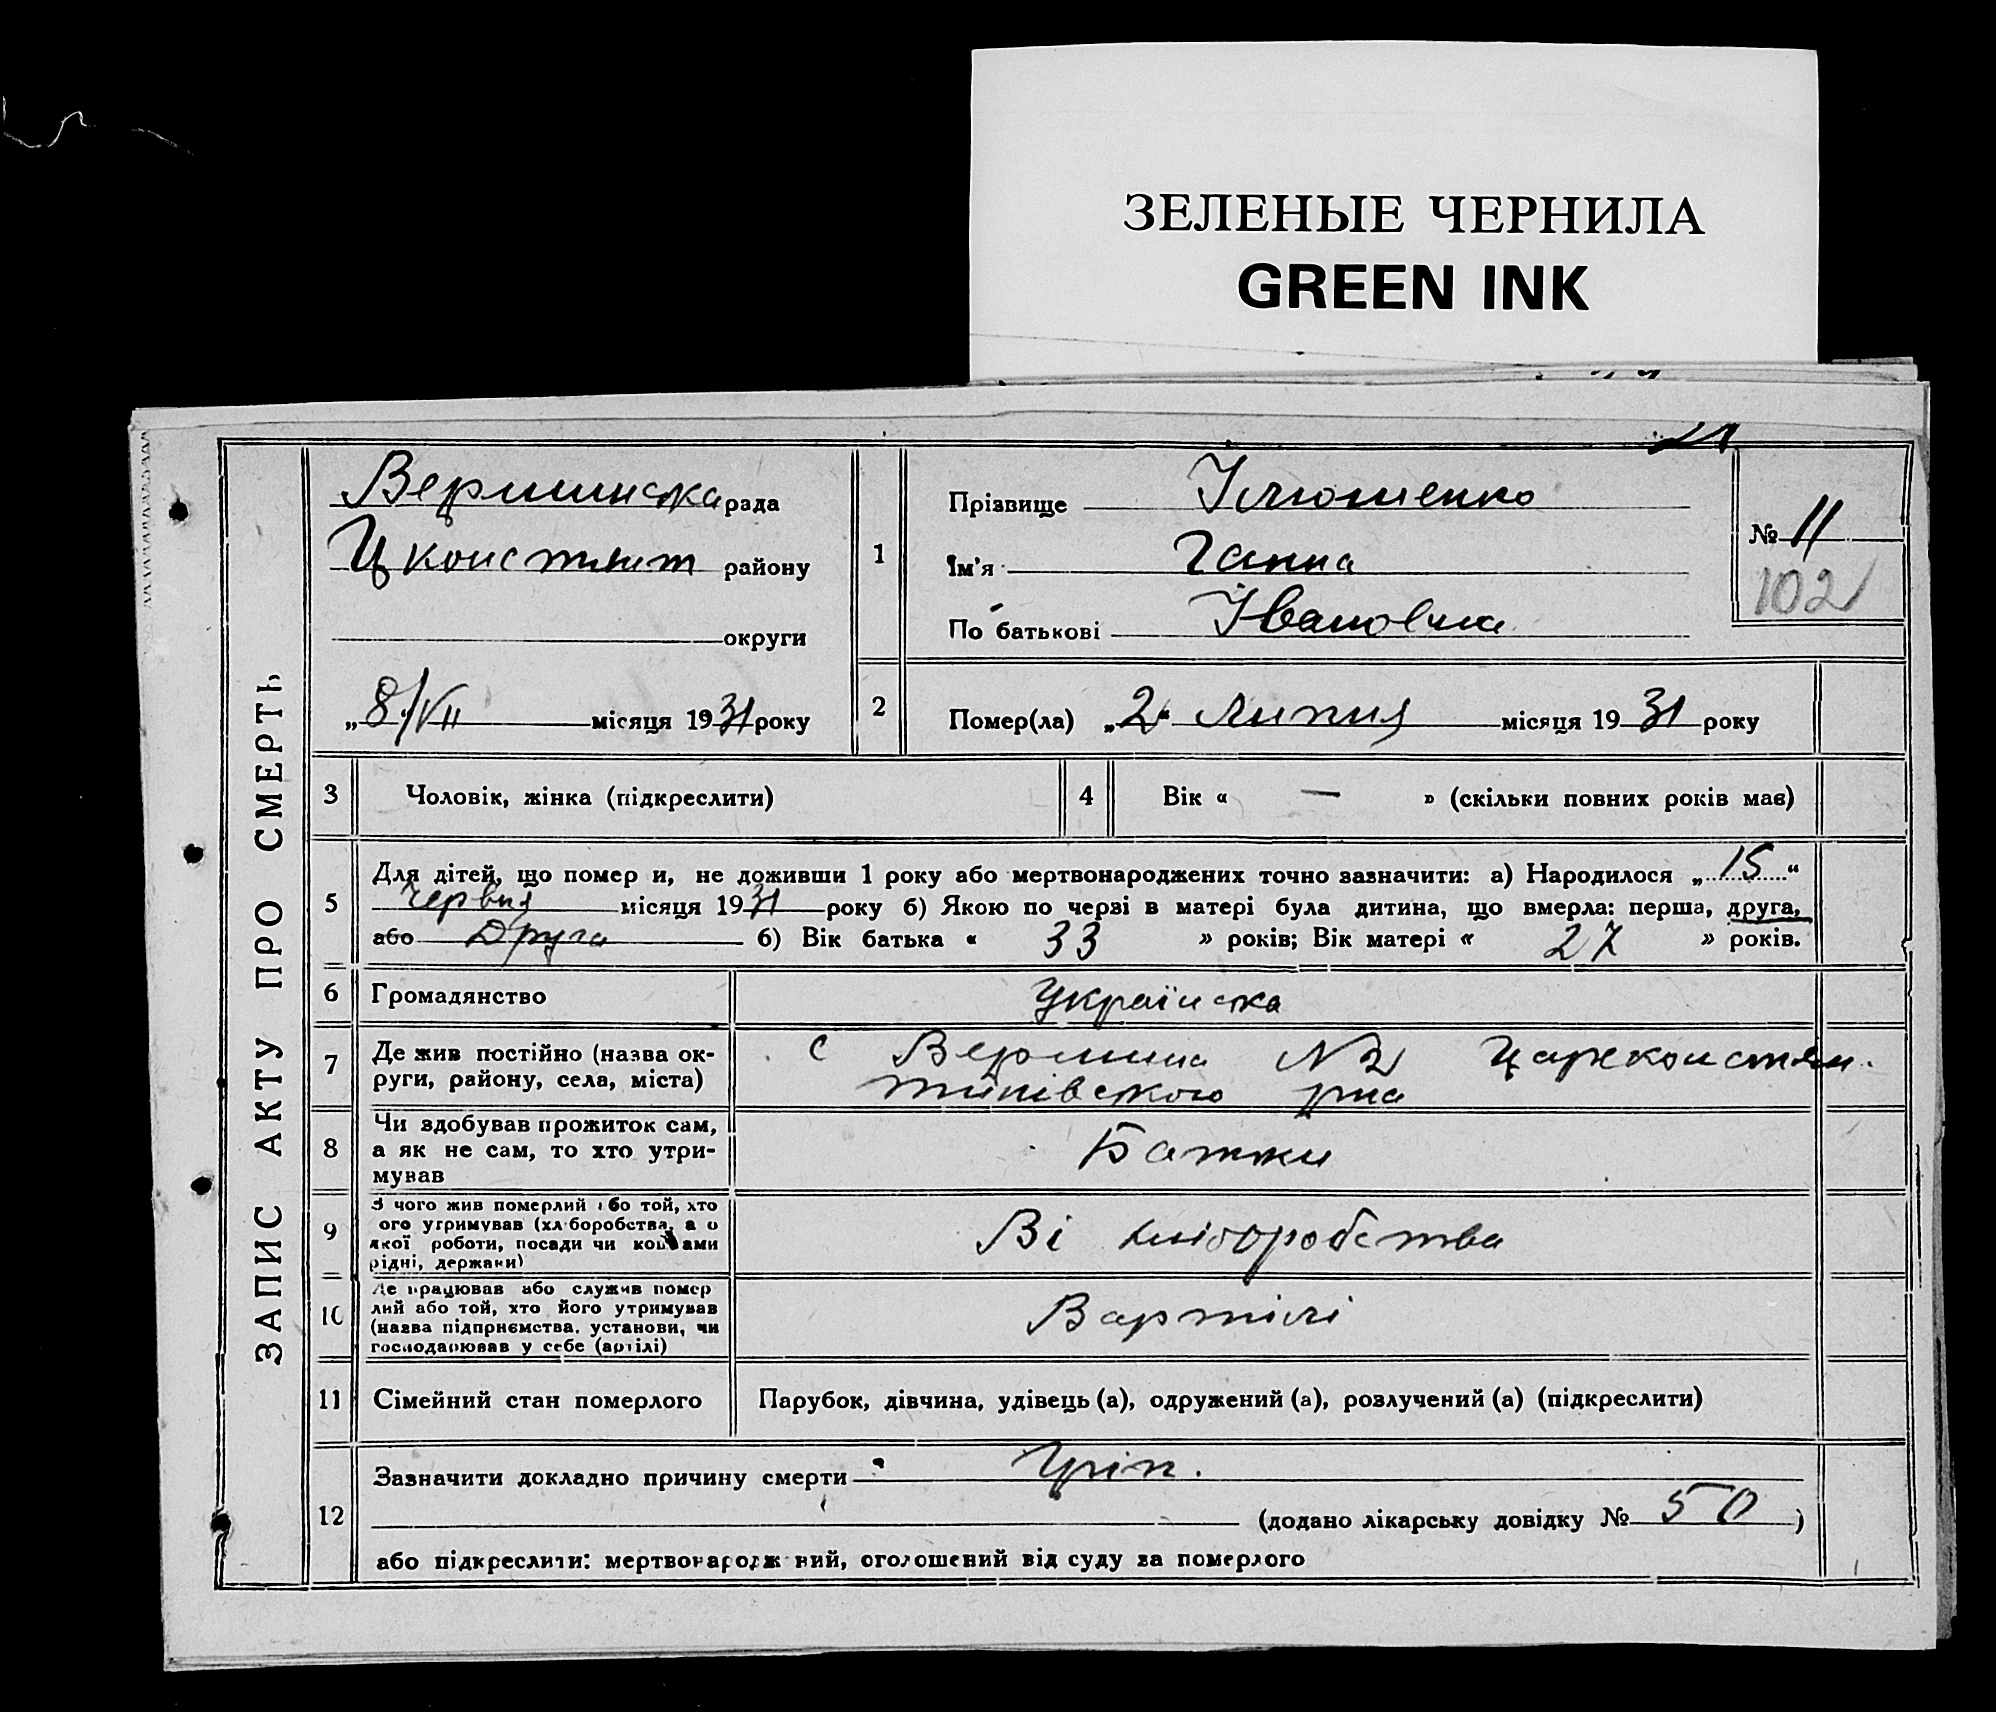 ЗЕЛЕНЫЕ ЧЕРНИЛА
GREEN INK
ЗАПИС АКТУ ПРО СМЕРТЬ
Вершинська рада
Ц констянт району
округи
„8/VII місяця 1931 року
1
Прізвище Ілюшенко
Ім'я Ганна
По батькові Івановна
№ 11
102
2
Помер(ла) „2“ Липня місяця 1931 року
3 Чоловік, жінка (підкреслити)
4 Вік « — » (скільки повних років має)
5 Для дітей, що помер и, не доживши 1 року або мертвонароджених точно зазначити: а) Народилося „15“
Червня місяця 1931 року б) Якою по черзі в матері була дитина, що вмерла: перша, друга,
або Друга б) Вік батька « 33 » років; Вік матері « 27 » років.
6 Громадянство Українська
7 Де жив постійно (назва ок-
руги, району, села, міста)
с Вершина №2 Царекостян.
тинівського рна
8 Чи здобував прожиток сам,
а як не сам, то хто утри-
мував
Батжки
9 З чого жив померлий або той, хто
ого утримував (хл боробства, а о
якої роботи, посади чи коштами
рідні, держави)
Ві хліборобства
10 Де працював або служив помер
лий або той, хто його утримував
(назва підприємства, установи, чи
господарював у себе (артілі)
Вартілі
11 Сімейний стан померлого Парубок, дівчина, удівець (а), одружений (а), розлучений (а) (підкреслити)
12 Зазначити докладно причину смерти Гріп.
(додано лікарську довідку № 50)
або підкреслити: мертвонародж ний, оголошений від суду за померлого